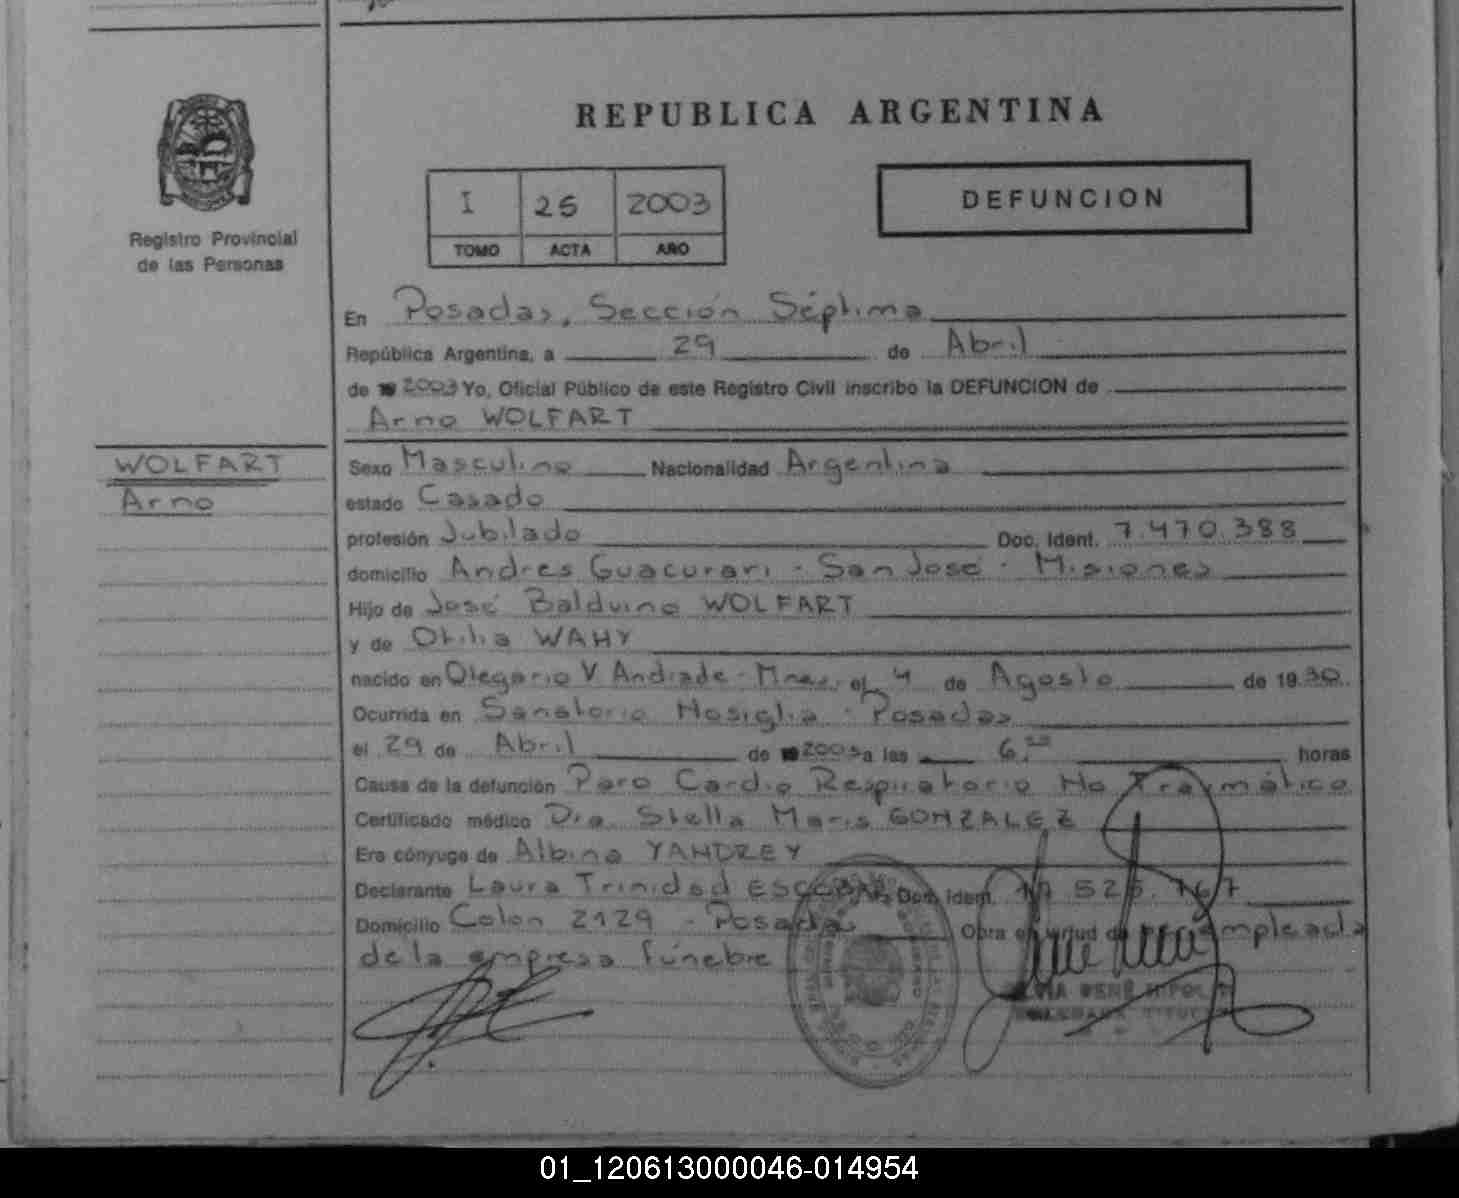 REPUBLICA ARGENTINA
Registro Provincial
de las Personas
I 25 2003
TOMO ACTA AÑO
DEFUNCION
En Posadas, Sección Séptima
República Argentina, a 29 de Abril
de 2003 Yo, Oficial Público de este Registro Civil inscribo la DEFUNCION de
Arno WOLFART
WOLFART
Arno
Sexo Masculino Nacionalidad Argentina
estado Casado
profesión Jubilado Doc. Ident. 7.470.388
domicilio Andres Guacurari - San José - Misiones
Hijo de José Balduino WOLFART
y de Otilia WAHY
nacido en Olegario V Andrade - Mnes. el 4 de Agosto de 1930
Ocurrida en Sanatorio Nosiglia - Posadas
el 29 de Abril de 2003 a las 6. horas
Causa de la defunción Paro Cardio Respiratorio No Traumático
Certificado médico Dra. Stella Maris GONZALEZ
Era cónyuge de Albina YANDREY
Declarante Laura Trinidad ESCOBAR Doc. Ident. 17 525.767
Domicilio Colon 2129 - Posadas Obra en virtud de empleada
de la empresa fúnebre
01_120613000046-014954